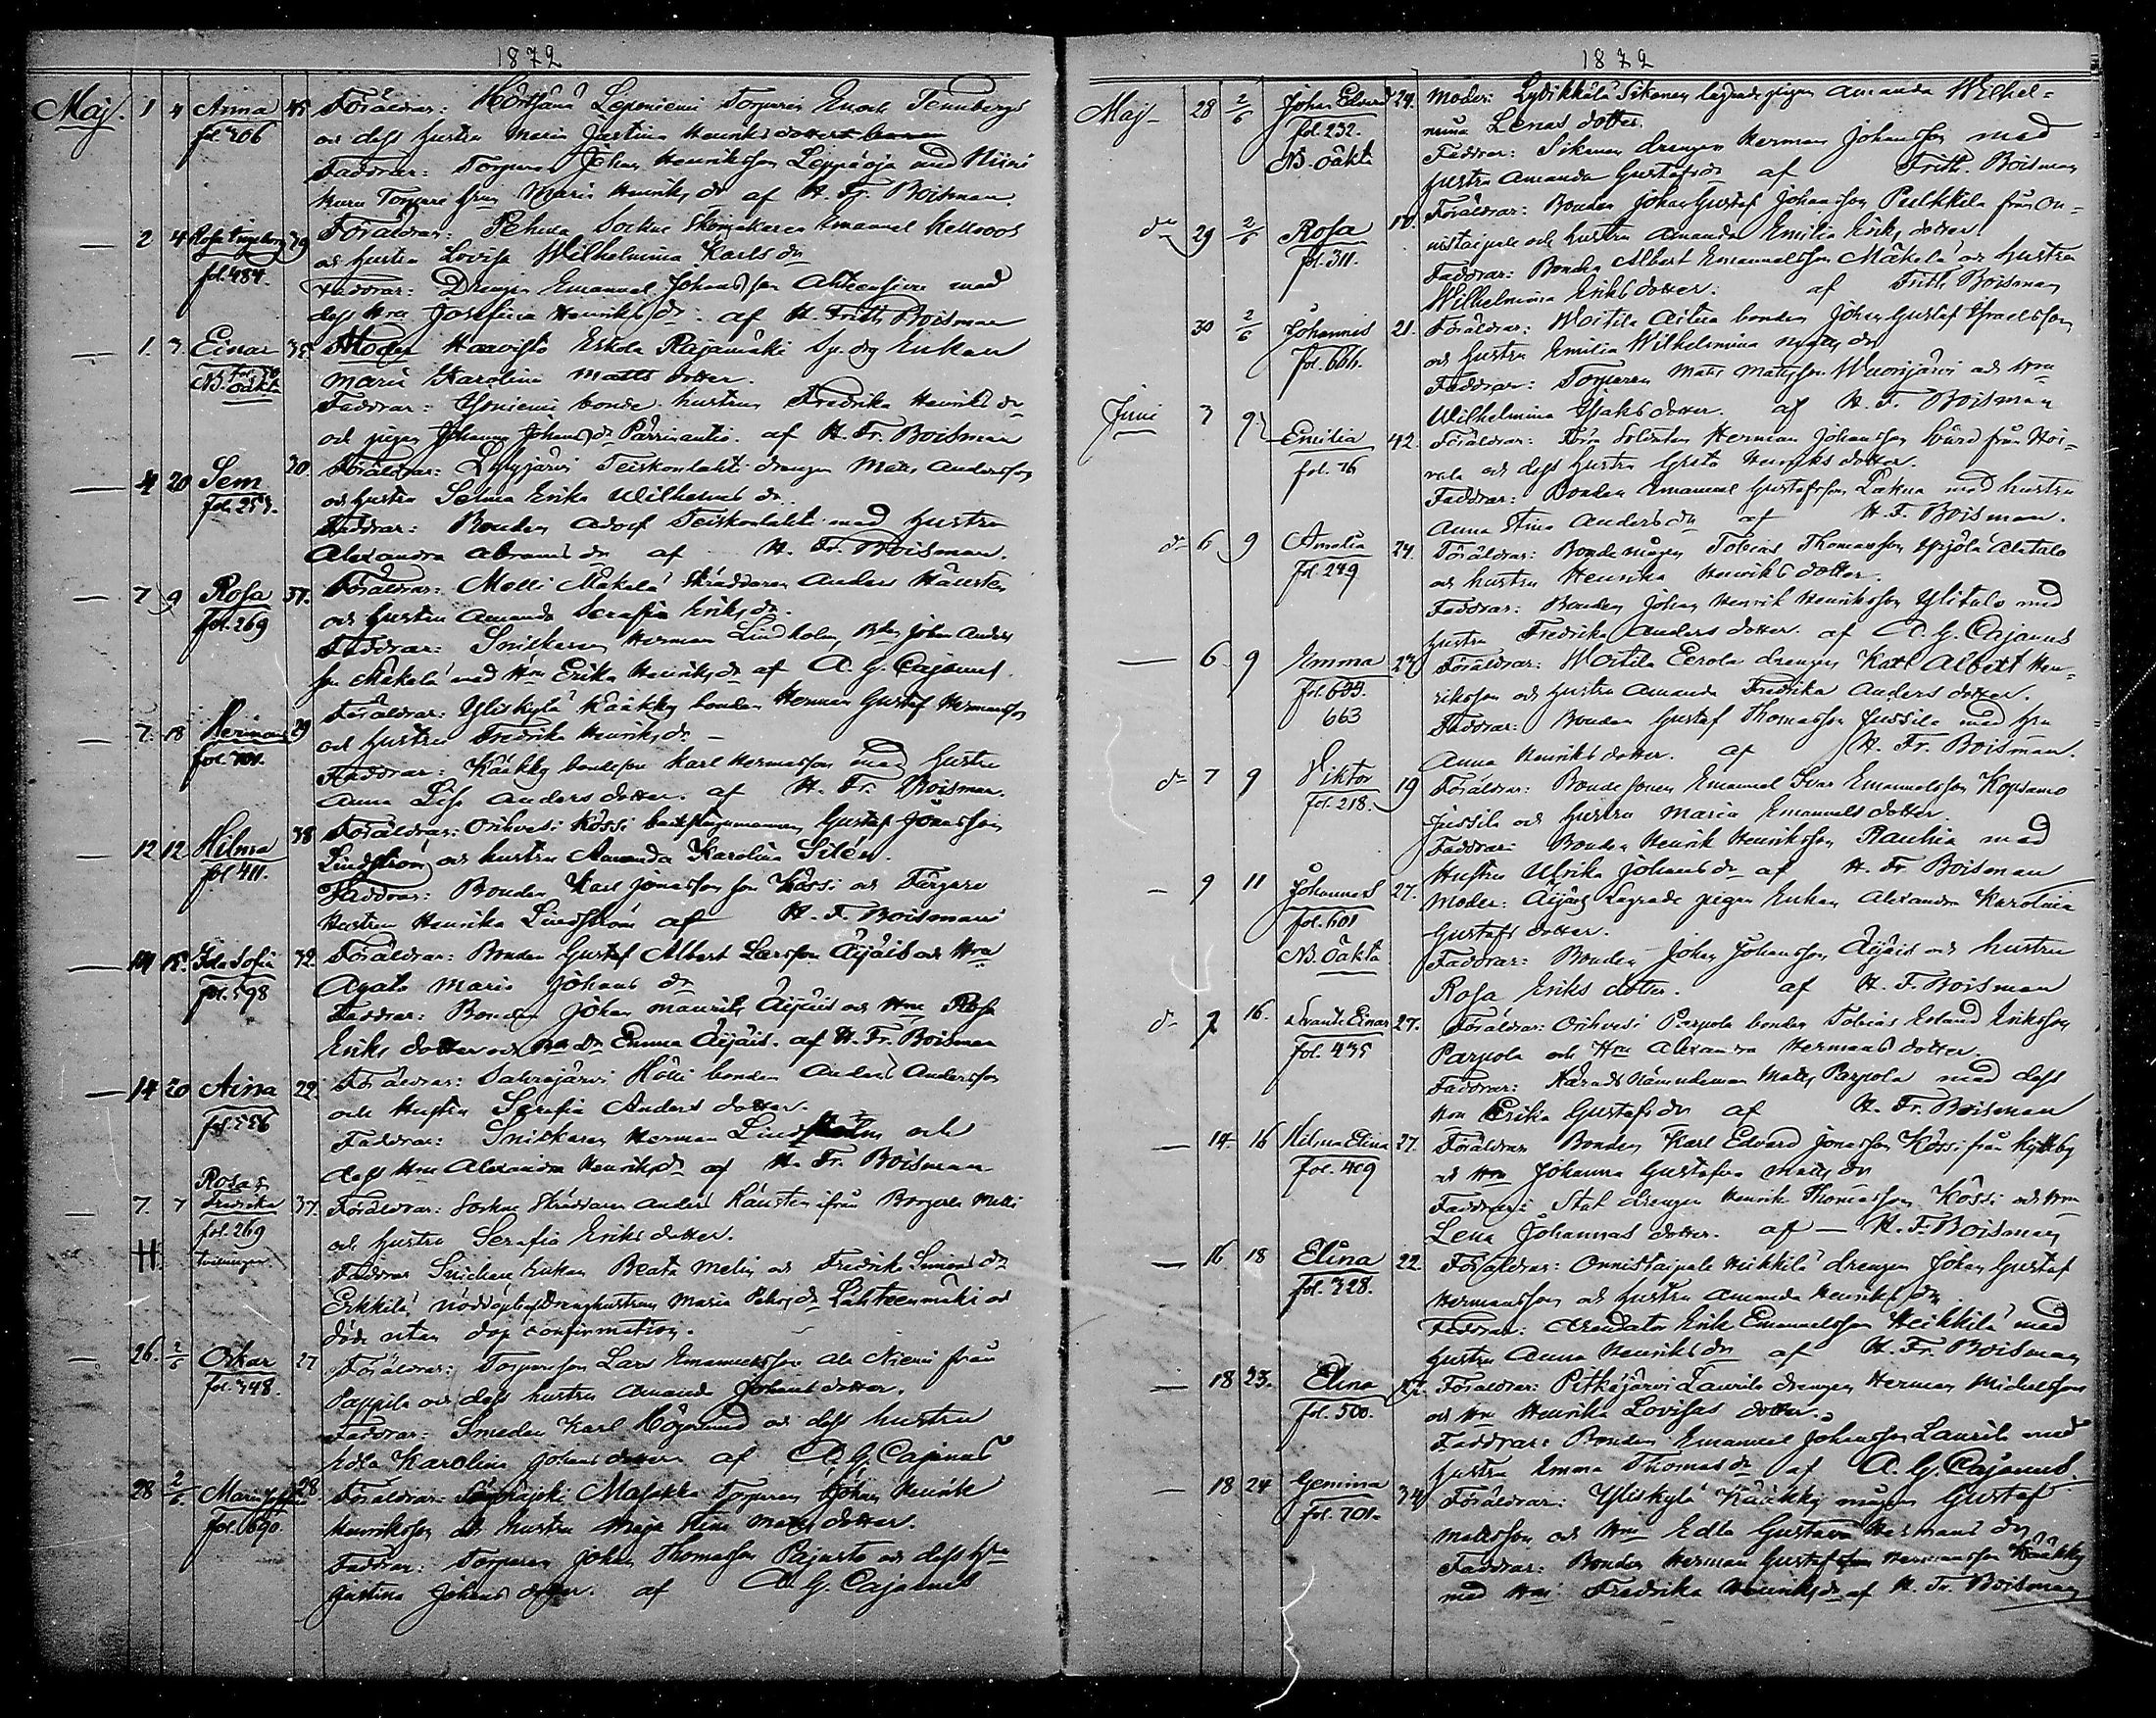 1872
Maj. 1 4 Anna 45 Föräldrar: Leponiemi Torparen Enok Tennberg
fol. 706 och dess hustru Maria Justina Henriksdotter
Faddrar: Torparen Johan Henriksson Leppäoja med
Torpare hrun Maria Henriks dr af H. Fr. Boisman.
— 2 4 Rosa Ingeborg 39 Föräldrar: Sockne Skomakaren Emanuel Hellroos
fol. 484. och hustru Lovisa Wilhelmina Karls dr
Faddrar: Drengen Emanuel Johansson med
dess Hru Josefina Henriks dr af H. Frith Boisman
— 1. 7. Einar 35 Moder Haavisto Eskola Rajamäki Enkan
NB. oäkta Maria Karolina Matts dotter.
Faddrar: bonde hustrun Fredrika Henriks dr
och pigan Johanna Johans dr af H. Fr. Boisman
— 4 20 Sem 30. Föräldrar: Lyly järvi Teiskonlahti drengen Matts Andersson
fol. 253. och hustru Selma Erika Wilhelms dr.
Faddrar: Bonden Adolf Teiskonlahti med hustru
Alexandra Abrams dr af H. Fr. Boisman.
— 7 9 Rosa 37. Föräldrar: Melli Mäkelä Skräddaren Anders Känsten
fol. 269 och hustru Amanda Serafia Eriks dr.
Faddrar: Snickaren Herman Lindholm, Johan Anders
son Mäkelä med Hru Erika Henriks dr af A. G. Cajanus.
— 7. 18 Herman 29 Föräldrar: Yliskylä Kääkky bonden Herman Gustaf Hermansson
fol. 701. och hustru Fredrika Henriks dr —
Faddrar: Kääkky bondeson Karl Hermansson med hustru
Anna Lisa Anders dotter. af H. Fr. Boisman.
— 12 12 Hilma 38 Föräldrar: Orihvesi Kössi Gustaf Jonasson
fol 411. Lindström och hustru Amanda Karolina Silén.
Faddrar: Bonden Karl Jonasson Kössi och Färgare
Hustrun Henrika Lindström af H. F. Boisman
— 14 15. Ida Sofia 32. Föräldrar: Bonden Gustaf Albert Larsson Äijäis och Hru
fol. 598 Agata Maria Johans dr
Faddrar: Bonden Johan Mauritz Äijäis och Hru Rosa
Eriks dotter och Emma Äijäis. af H. Fr. Boisman
— 14 20 Aina 22. Föräldrar: Sahrajärvi Hölli bonden Anders Andersson
fol. 556 och Hustru Serafia Anders dotter.
Faddrar: Snickaren Herman och
dess Hru Alexandra Henriks dr af H. Fr. Boisman
— 7. 7 Rosa & Fredrika 37. Föräldrar: Sockne Skräddaren Anders Känsten ifrån Melli
fol. 269 och hustru Serafia Eriks dotter.
tvillingar Faddrar Snickare Enkan Beata Melin och Fredrika Simons dr
Erkkilä nöddöpt af Drenghustrun Maria Lähteenmäki och
döde utan dop confirmation.
— 26. 2/6 Oskar 27 Föräldrar: Torpareson Lars Emanuelsson Ala Niemi från
fol. 348. Pappila och dess hustru Amanda Johans dotter.
Faddrar: Smeden Karl Högmund och dess hustru
Edla Karolina Johans dotter af A. G. Cajanus
28 2/6. Maria 28 Föräldrar: Masakka Torparen Johan Henrik
fol. 690. Henriksson och hustru Maja Stina Matts dotter.
Faddrar: Torparen Johan Thomasson Pajusto och dess hru
Justina Johans dotter. af A. G. Cajanus
1872
Maj— 28 2/6 Johan Edvard 24. Moder: Lydikkälä Sikanen lägrade pigan Amanda Wilhel=
fol. 232. mina Lenas dotter.
NB. oäkta Faddrar: Sikanen drengen Herman Johansson med
hustru Amanda Gustafs dr af Frith. Boisman
do 29 2/6 Rosa Föräldrar: Bonden Johan Gustaf Johansson Pulkkila från On=
fol. 311. nistaipale och hustru Amanda Emilia Eriks dotter.
Faddrar: Bonden Albert Emanuelsson Mäkelä och hustru
Wilhelmina Eriks dotter. af Frith Boisman
30 2/6 Johannes 21. Föräldrar: Woitila Aitna bonden Johan Gustaf Israelsson
fol. 666. och hustru Emilia Wilhelmina Matts dr
Faddrar: Torparen Matts Mattsson Wuorijärvi och hru
Wilhelmina Isaks dotter. af H. F. Boisman
Juni 3 9. Emilia 42. Föräldrar: Förra Soldaten Herman Johansson Svärd från Hoi=
fol. 76 vala och dess hustru Greta Henriks dotter.
Faddrar: Bonden Emanuel Gustafsson med hustru
Anna Stina Anders dr af H. F. Boisman.
do 6 9 Amalia 24 Föräldrar: Bonde mågen Tobias Thomasson Yrjölä Alatalo
fol. 249 och hustru Henrika Henriks dotter.
Faddrar: Bonden Johan Henrik Henriksson Ylitalo med
hustru Fredrika Anders dotter. af A. G. Cajanus
— 6 9 Emma 27 Föräldrar: Woitila Eerola drengen Karl Albert Hen=
fol. 633. riksson och hustru Amanda Fredrika Anders dotter.
663 Faddrar: Bonden Gustaf Thomasson Jussila med hru
Anna Henriks dotter. af H. Fr. Boisman.
do 7 9 Viktor 19 Föräldrar: Bonde sonen Emanuel Ivar Emanuelsson Kopsamo
fol. 218. Jussila och hustru Maria Emanuels dotter.
Faddrar: Bonden Henrik Henriksson Rauhia med
Hustru Ulrika Johans dr af H. Fr Boisman
— 9 11 Johannes 27. Moder: Äijäis Lägrade pigan Enkan Alexandra Karolina
fol. 601 Gustafs dotter.
NB. oäkta Faddrar: Bonden Johan Johansson Äijäis och hustru
Rosa Eriks dotter. af H. F. Boisman
do 7 16. Svante Einar 27. Föräldrar: Orihvesi Parpola bonden Tobias Erland Eriksson
fol. 435 Parpola och Hru Alexandra Hermans dotter.
Faddrar: Härads Nämndeman Matts Parpola med dess
Hru Erika Gustafs dr af H. Fr. Boisman
— 14 16 Hilma Elina 27. Föräldrar Bonden Karl Edvard Jonasson Kössi från Kyttby
fol. 409 och Hru Johanna Gustafva Matts dr
Faddrar: Stat drengen Henrik Thomasson Kössi och hru
Lena Johannas dotter. af — H. F. Boisman
— 16 18 Elina 22. Föräldrar: Onnistaipale Heikkilä drengen Johan Gustaf
fol. 328. Hermansson och hustru Amanda Henriks dr
Faddrar: Arendator Erik Emanuelsson Heikkilä med
hustru Anna Henriks dr af H. Fr. Boisman
— 18 23. Elina Föräldrar: Pitkäjärvi Laurila drengen Herman Michelsson
fol. 500. och Hru Henrika Lovisas dotter.
Faddrar: Bonden Emanuel Johansson Laurila med
hustru Emma Thomas dr af A. G. Cajanus.
— 18 24 Gemima 34 Föräldrar: Yliskylä Kääkky mågen Gustaf
fol. 701. Mattsson och Hru Edla Gustava Hermans dr
Faddrar: Bonden Herman Gustaf Hermansson Kääkky
med Hru Fredrika Henriks dr af H. Fr. Boisman